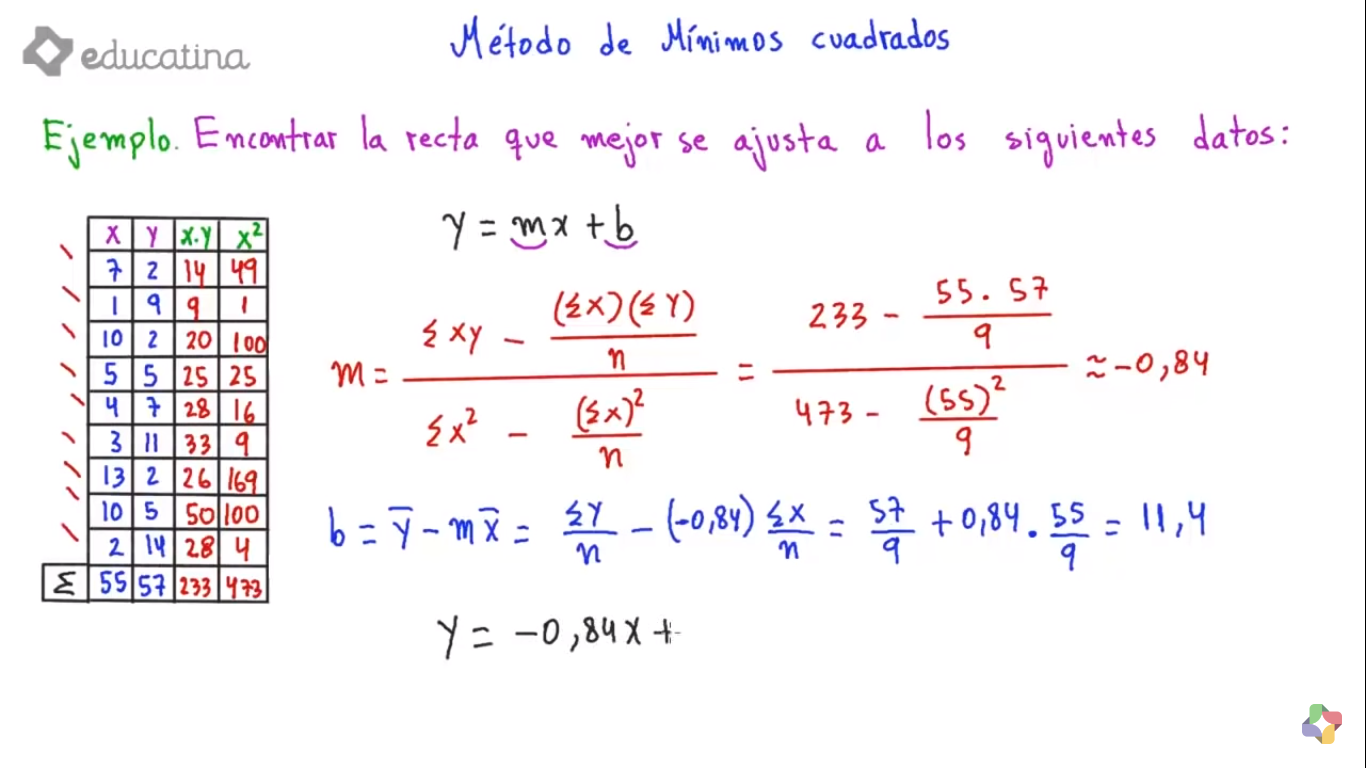 educatina
Método de Mínimos cuadrados
Ejemplo. Encontrar la recta que mejor se ajusta a los siguientes datos:
X Y X.Y X²
7 2 14 49
1 9 9 1
10 2 20 100
5 5 25 25
4 7 28 16
3 11 33 9
13 2 26 169
10 5 50 100
2 14 28 4
Σ 55 57 233 473
Y = mx + b
m = (Σxy - (Σx)(ΣY)/n) / (Σx² - (Σx)²/n) = (233 - 55.57/9) / (473 - (55)²/9) ≈ -0,84
b = Y̅ - mX̅ = ΣY/n - (-0,84) Σx/n = 57/9 + 0,84 . 55/9 = 11,4
Y = -0,84X +